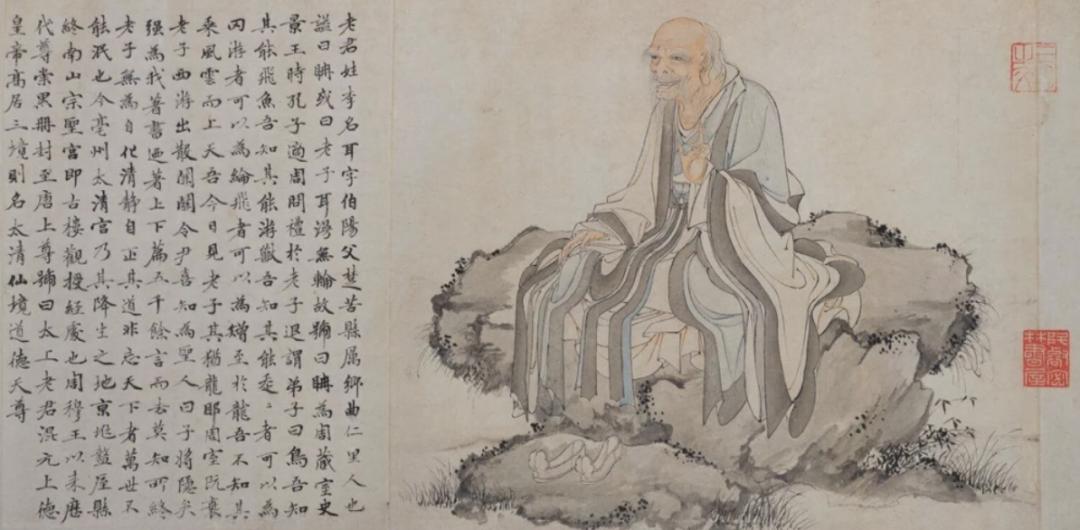 老君姓李名耳字伯陽父楚苦縣厲鄉曲仁里人也
諡曰聃或曰老子耳漫無輪故號曰聃為周藏室史
景王時孔子適周問禮於老子退謂弟子曰鳥吾知
其能飛魚吾知其能游獸吾知其能走〻者可以為
罔游者可以為綸飛者可以為矰至於龍吾不知其
乘風雲而上天吾今日見老子其猶龍耶周室既衰
老子西游出散關關令尹喜知為聖人曰子將隱矣
强為我著書迺著上下篇五千餘言而去莫知所終
老子無為自化清静自正其道非忘天下者萬世不
能泯也今亳州太清宮乃其降生之地京兆盩厔縣
終南山宗聖宮即古樓觀授經處也周穆王以来歷
代尊崇累冊封至唐上尊號曰太上老君混元上德
皇帝高居三境則名太清仙境道德天尊